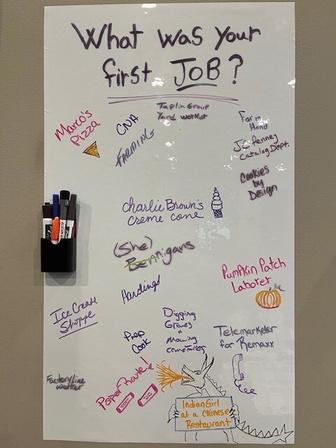 What was your
first JOB?
Marco's
Pizza
CNA
FARMING
Taplin Group
Farm
Hand
JcPenney
Catalog Dept.
Cookies
by
Design
Charlie Brown's
creme cone
(She)
Bennigans
Pumpkin Patch
Laborer
Hardings!
Ice Cream
Shoppe
Prep
Cook
Digging
Graves
+
Mowing
cemeteries
Telemarketer
for Remaxx
Factory line
worker
Paper Route!
Indian Girl
at a Chinese
Restaurant